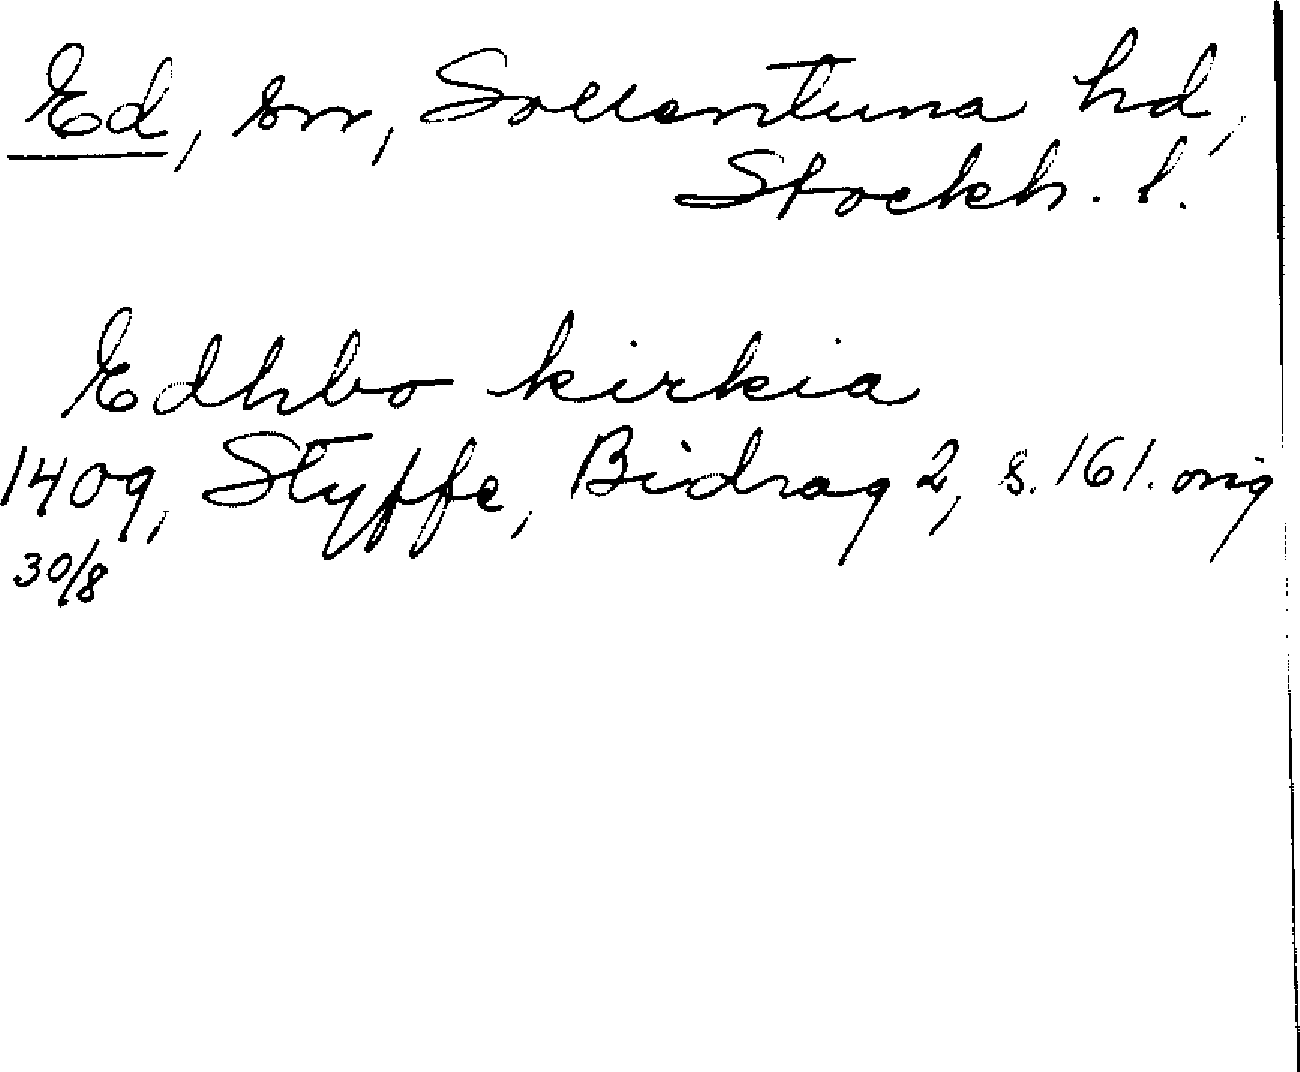 Ed, sn, Sollentuna hd,
Stockh. l.
Edhbo kirkia
1409, Styffe, Bidrag 2, s. 161. orig
30/8